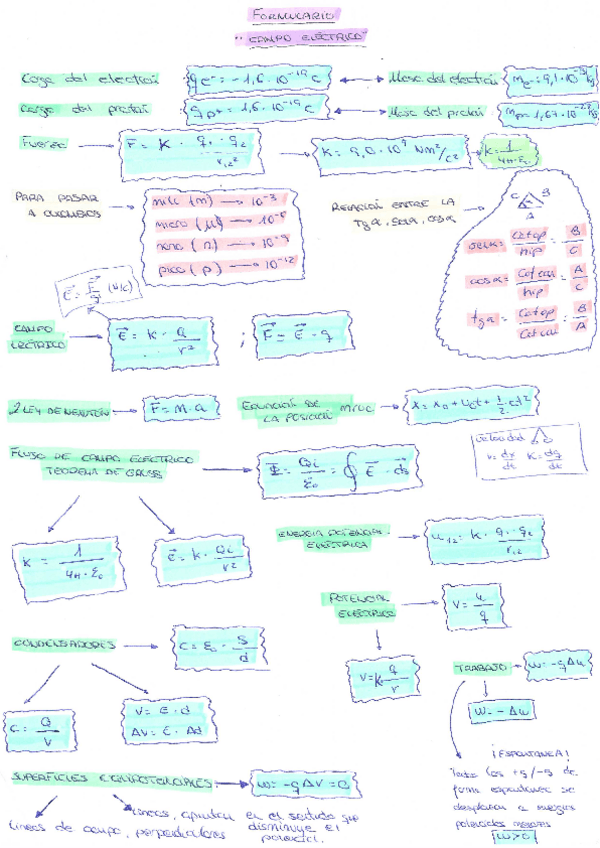 FORMULARIO
"CAMPO ELÉCTRICO"
Carga del electrón qe- = -1,6 · 10⁻¹⁹ C Masa del electrón me- = 9,1 · 10⁻³¹ kg
Carga del protón qp+ = 1,6 · 10⁻¹⁹ C Masa del protón mp = 1,67 · 10⁻²⁷ kg
Fuerza F = K · q₁ · q₂ / r₁₂² K = 9,0 · 10⁹ Nm²/C² K = 1 / 4π · ε₀
PARA PASAR A CULOMBIOS
mili (m) → 10⁻³
micro (μ) → 10⁻⁶
nano (n) → 10⁻⁹
pico (p) → 10⁻¹²
RELACIÓN ENTRE LA Tgα, senα, cosα
C B
A
senα = Cat op / hip = B / C
cosα = Cat con / hip = A / C
tgα = Cat op / Cat con = B / A
E = F / q (N/C)
CAMPO ELÉCTRICO E = K · Q / r² ; F = E · q
2 LEY DE NEWTON F = m · a
ECUACIÓN DE LA POSICIÓN MRUA x = x₀ + v₀t + 1/2 at²
velocidad
v = dx / dt
FLUJO DE CAMPO ELÉCTRICO
TEOREMA DE GAUSS Φ = Qi / ε₀ = ∮ E · ds
K = 1 / 4π · ε₀ E = K · Qi / r²
ENERGÍA POTENCIAL ELÉCTRICA u₁₂ = K · q₁ · q₂ / r₁₂
POTENCIAL ELÉCTRICO V = u / q
V = K q / r
CONDENSADORES C = ε₀ · S / d
C = Q / V
V = E · d
ΔV = E · Δd
TRABAJO W = -qΔu
W = -Δu
¡ESPONTANEA!
Todas las +q/-q de
forma espontanea se
desplazan a energias
potenciales menores
W>0
SUPERFICIES EQUIPOTENCIALES W = -qΔV = 0
Lineas de campo, perpendiculares
Lineas, apuntan en el sentido que
disminuye el
potencial.